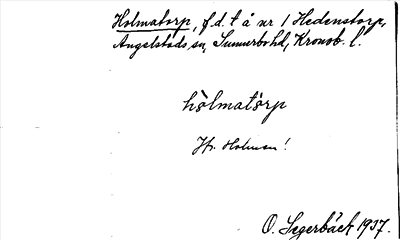 Holmatorp, f.d. t å nr 1 Hedenstorp,
Angelstads sn, Sunnerbo hd, Kronob. l.
hòlmatòrp
Jfr. Holmen!
O. Segerbäck 1937.